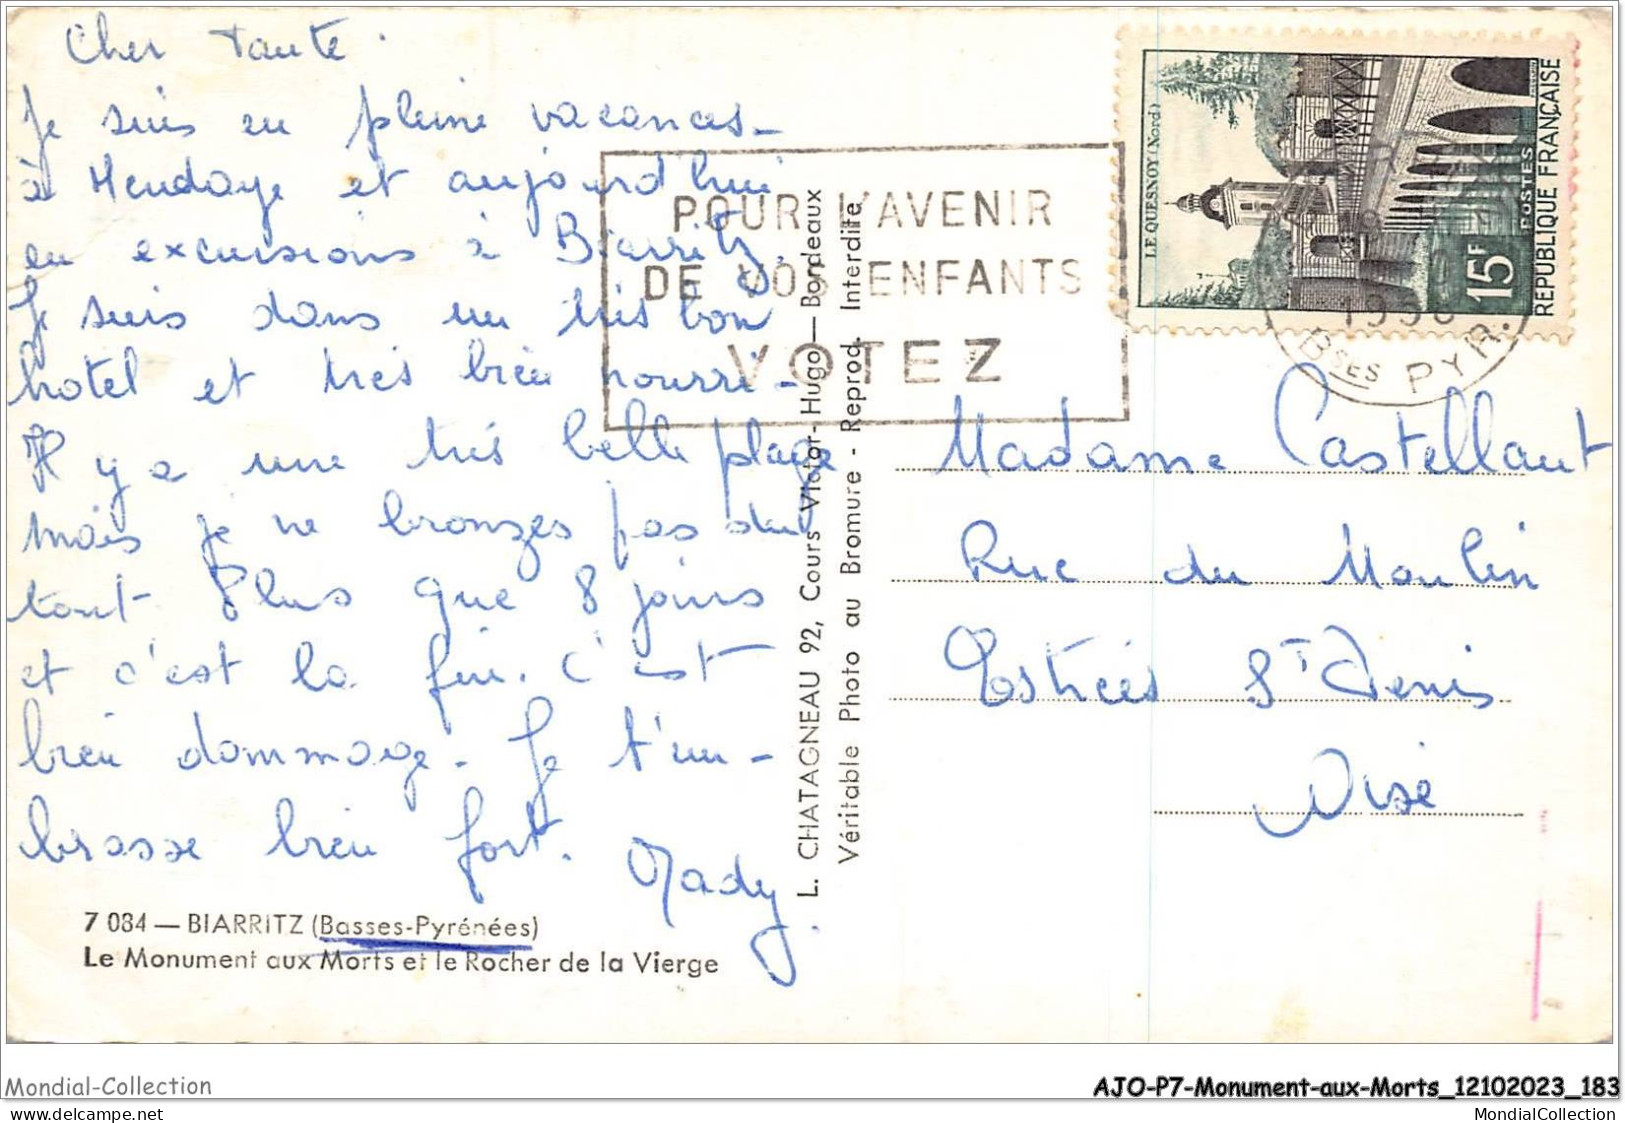 Cher tante.
Je suis en pleine vacances
à Hendaye et aujourd'hui
en excursions à Biarritz.
Je suis dans un très bon
hôtel et très bien nourri.
Il y a une très belle plage
mais je ne bronzes pas du
tout Plus que 8 jours
et c'est la fin. C'est
bien dommage. Je t'em-
brasse bien fort.
Mady
7 084 — BIARRITZ (Basses-Pyrénées)
Le Monument aux Morts et le Rocher de la Vierge
L. CHATAGNEAU 92, Cours Victor-Hugo — Bordeaux
Véritable Photo au Bromure - Reprod. Interdite
POUR L'AVENIR
DE VOS ENFANTS
VOTEZ
LE QUESNOY (Nord)
15F
POSTES
REPUBLIQUE FRANÇAISE
1958
BSES PYR.
Madame Castellant
Rue du Moulin
Estrées St Denis
Oise
Mondial-Collection
AJO-P7-Monument-aux-Morts_12102023_183
Uploaded by delcampe.net
MondialCollection